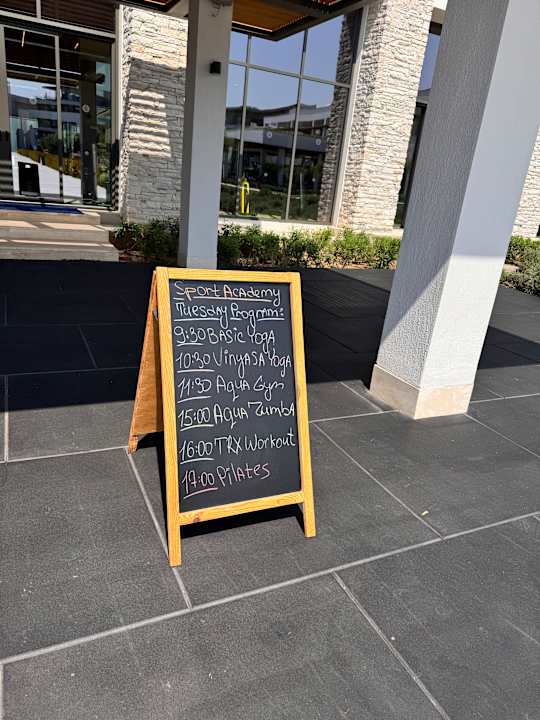 Sport Academy
Tuesday Program:
9:30 Basic Yoga
10:30 Vinyasa Yoga
11:30 Aqua Gym
15:00 Aqua Zumba
16:00 TRX Workout
17:00 Pilates